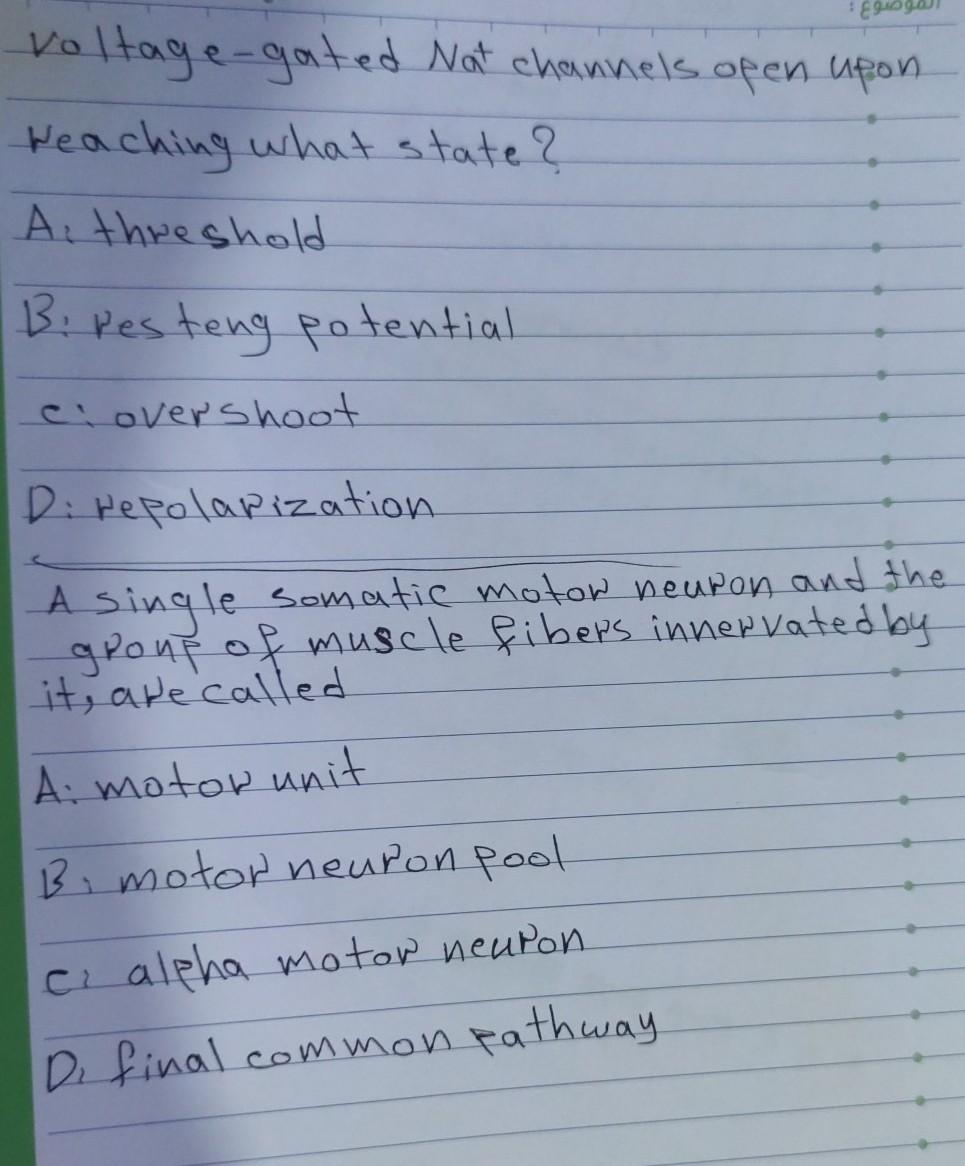 الموضوع:
Voltage-gated Na+ channels open upon
reaching what state?
A: threshold
B: resteng potential
C: overshoot
D: repolarization
A single somatic motor neuron and the
group of muscle fibers innervated by
it, are called
A: motor unit
B: motor neuron pool
C: alpha motor neuron
D: final common pathway